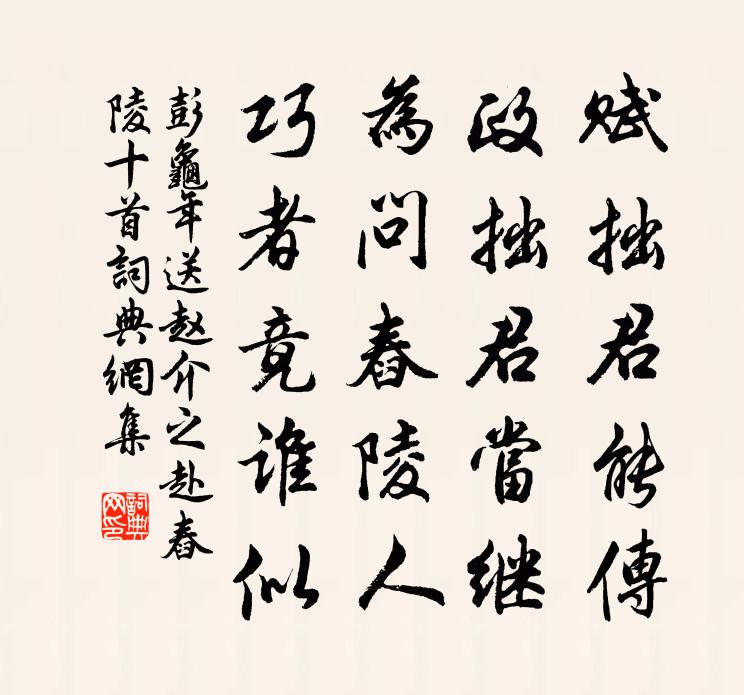 赋拙君能傳
政拙君當继
為問舂陵人
巧者竟谁似
彭龜年送赵介之赴舂
陵十首詞典網集
詞典网印